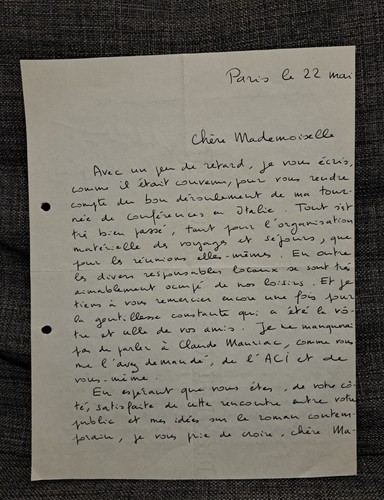 Paris le 22 mai
Chère Mademoiselle
Avec un peu de retard, je vous écris,
comme il était convenu, pour vous rendre
compte du bon déroulement de ma tour-
née de conférences en Italie. Tout s'est
très bien passé, tant pour l'organisation
matérielle des voyages et séjours, que
pour les réunions elles-mêmes. En outre
les divers responsables locaux se sont très
aimablement occupé de nos loisirs. Et je
tiens à vous remercier encore une fois pour
la gentillesse constante qui a été la vô-
tre et celle de vos amis. Je ne manquerai
pas de parler à Claude Mauriac, comme vous
me l'avez demandé, de l'ACI et de
vous-même.
En espérant que vous êtes, de votre cô-
té, satisfaite de cette rencontre entre votre
public et mes idées sur le roman contem-
porain, je vous prie de croire, chère Ma-